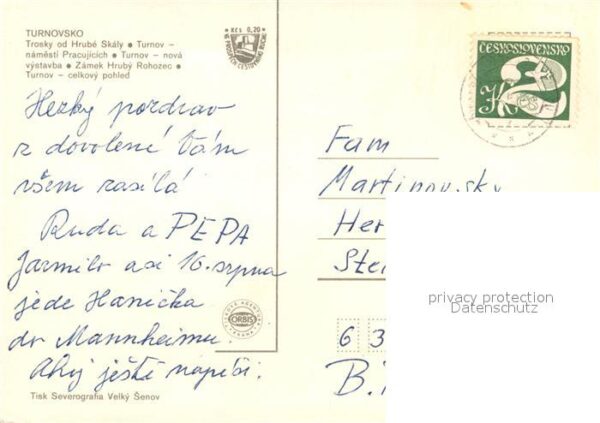 TURNOVSKO
Trosky od Hrubé Skály • Turnov –
náměstí Pracujících • Turnov – nová
výstavba • Zámek Hrubý Rohozec •
Turnov – celkový pohled
Kčs 0,20
ČESKOSLOVENSKO
2 Kčs
Hezký pozdrav
z dovolené Vám
všem zasílá
Ruda a PEPA
Jarmilo asi 16. srpna
jede Hanička
do Mannheimu.
Ahoj ještě napíši.
Fam
Martinovsky
Her
Stei
privacy protection
Datenschutz
6 3
B.
ORBIS
Tisk Severografia Velký Šenov